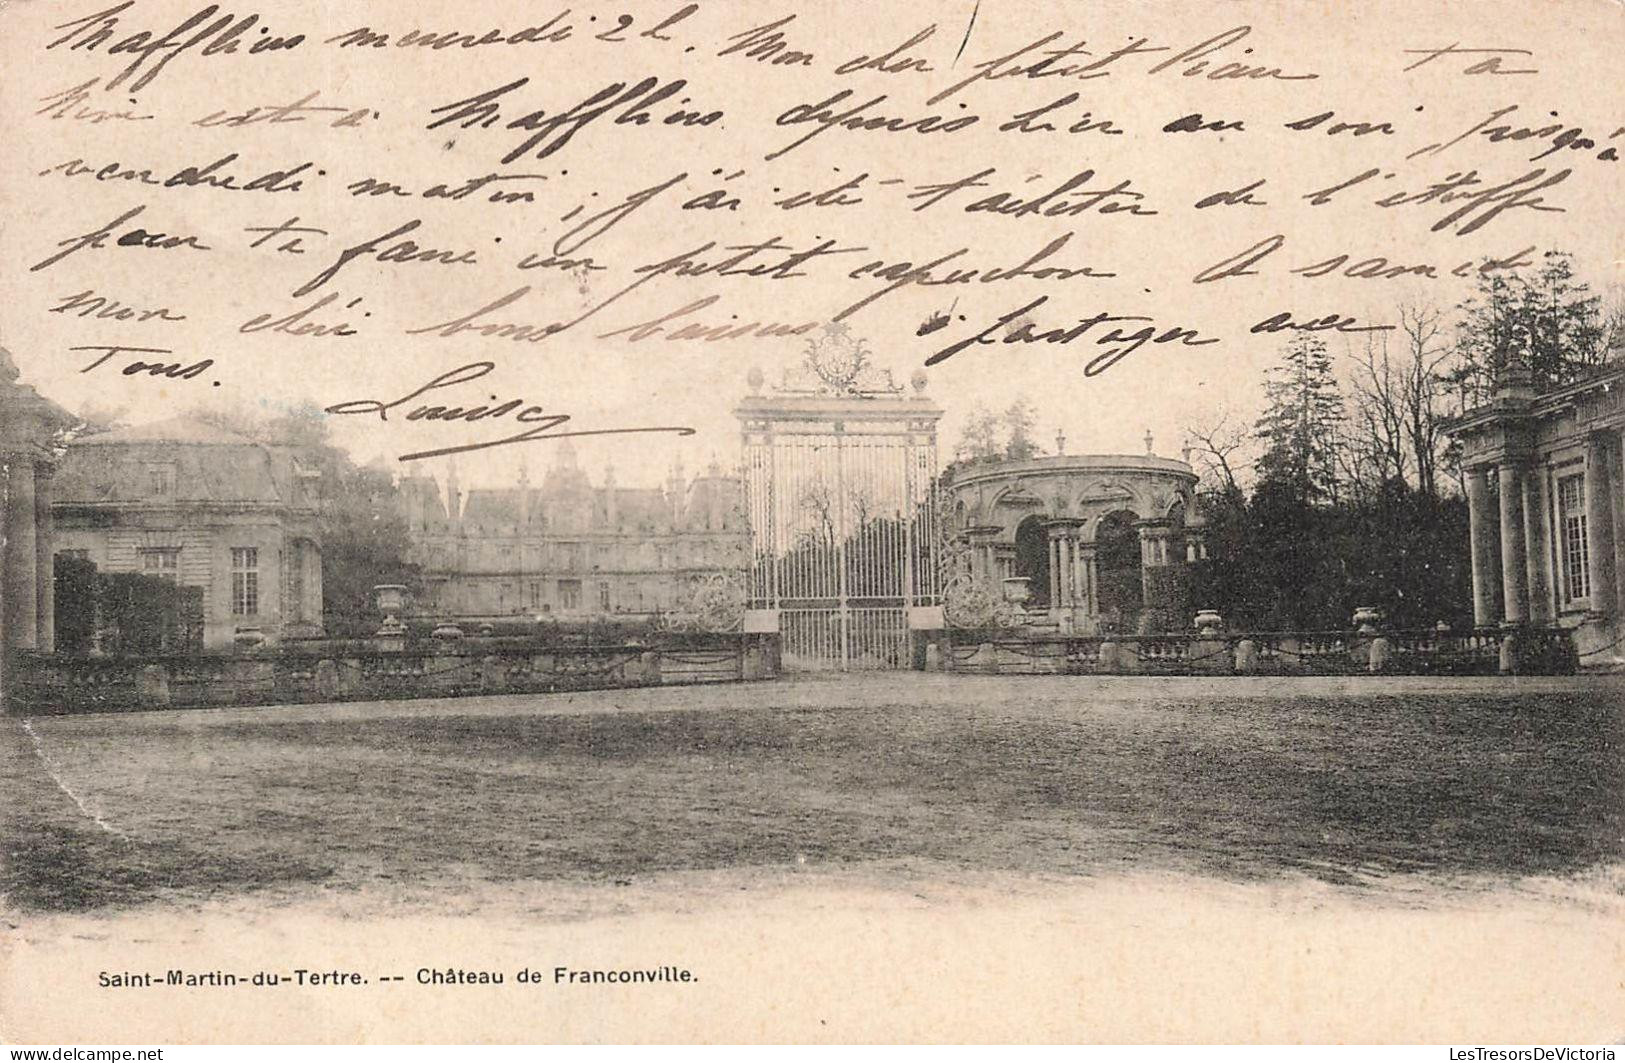 Maffliers mercredi 2 h. Mon cher petit Pian ta
Mimi est à Maffliers depuis hier au soir, jusqu'à
vendredi matin; j'ai été t'acheter de l'étoffe
pour te faire un petit capuchon. A samedi
mon chéri bons baisers à partager avec
Tous. Louise
Saint-Martin-du-Tertre. -- Château de Franconville.
Delcampe.com
LesTresorsDeVictoria